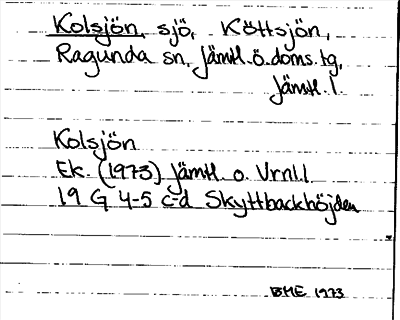 Kolsjön, sjö, Köttsjön,
Ragunda sn, Jämtl. ö. doms. tg,
Jämtl. l.
Kolsjön
Ek. (1973) Jämtl. o. Vrnl. l.
19 G 4-5 c-d Skyttbackhöjden
BME 1973